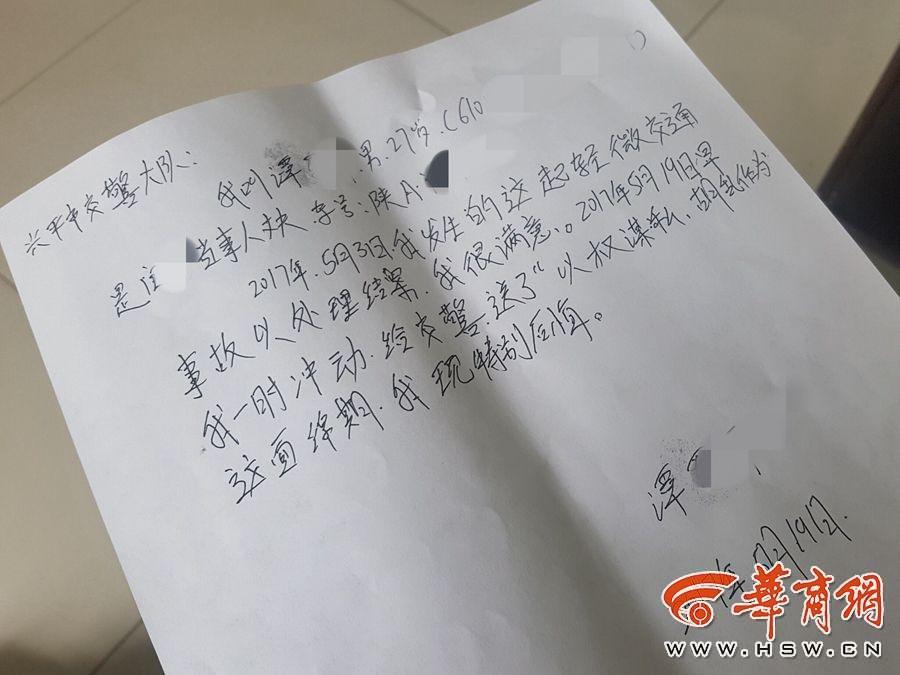 兴平市交警大队:
我叫潭 男.27岁.C610
是 当事人 车号:陕A.
2017年.5月31日.我发生的这起轻微交通
事故以处理结果.我很满意。2017年5月19日早
我一时冲动.给交警送了“以权谋私、胡乱作为
这面绵期.我现特别后悔。
潭
月19日.
華商網
WWW.HSW.CN